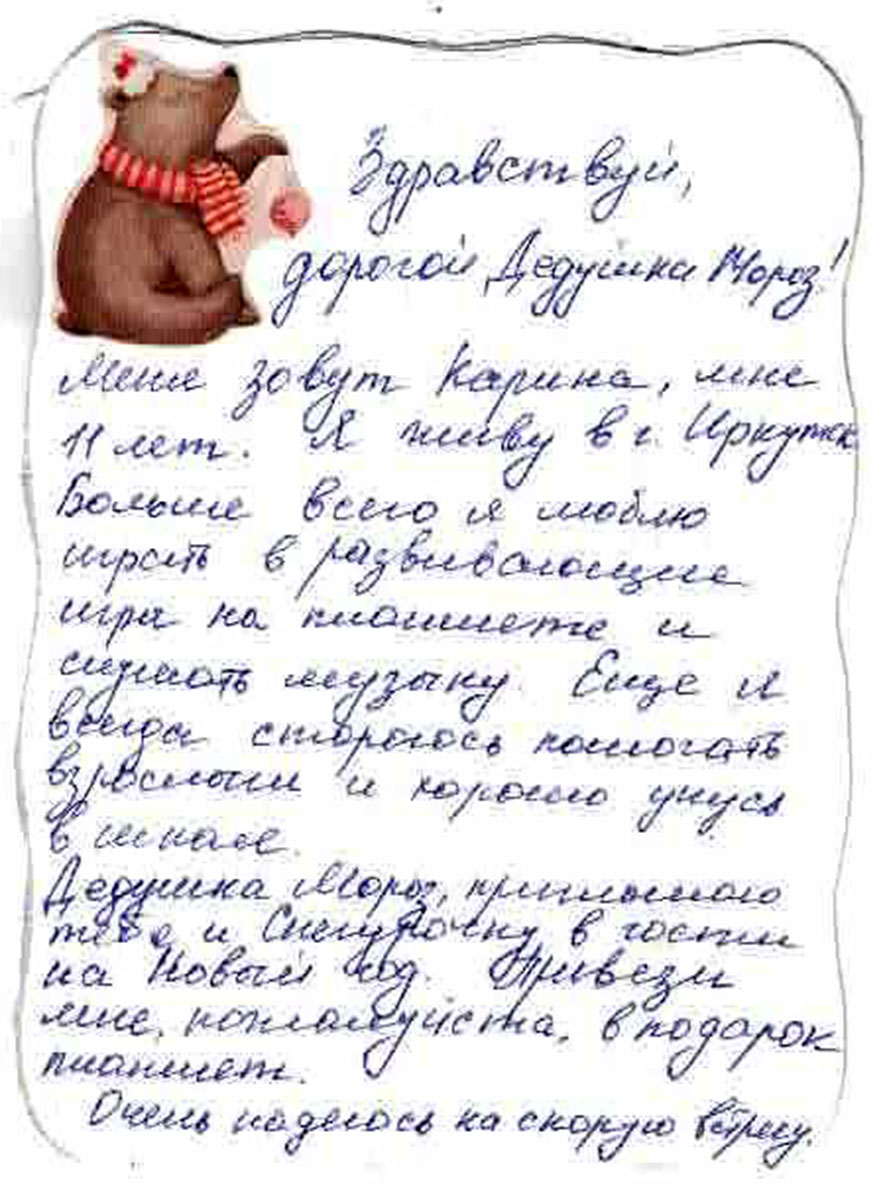 Здравствуй,
дорогой Дедушка Мороз!
Меня зовут Карина, мне
11 лет. Я живу в г. Иркутск
Больше всего я люблю
играть в развивающие
игры на планшете и
слушать музыку. Еще я
всегда стараюсь помогать
взрослым и хорошо учусь
в школе.
Дедушка Мороз, приглашаю
тебя и Снегурочку в гости
на Новый год. Привези
мне, пожалуйста, в подарок
планшет.
Очень надеюсь на скорую встречу.